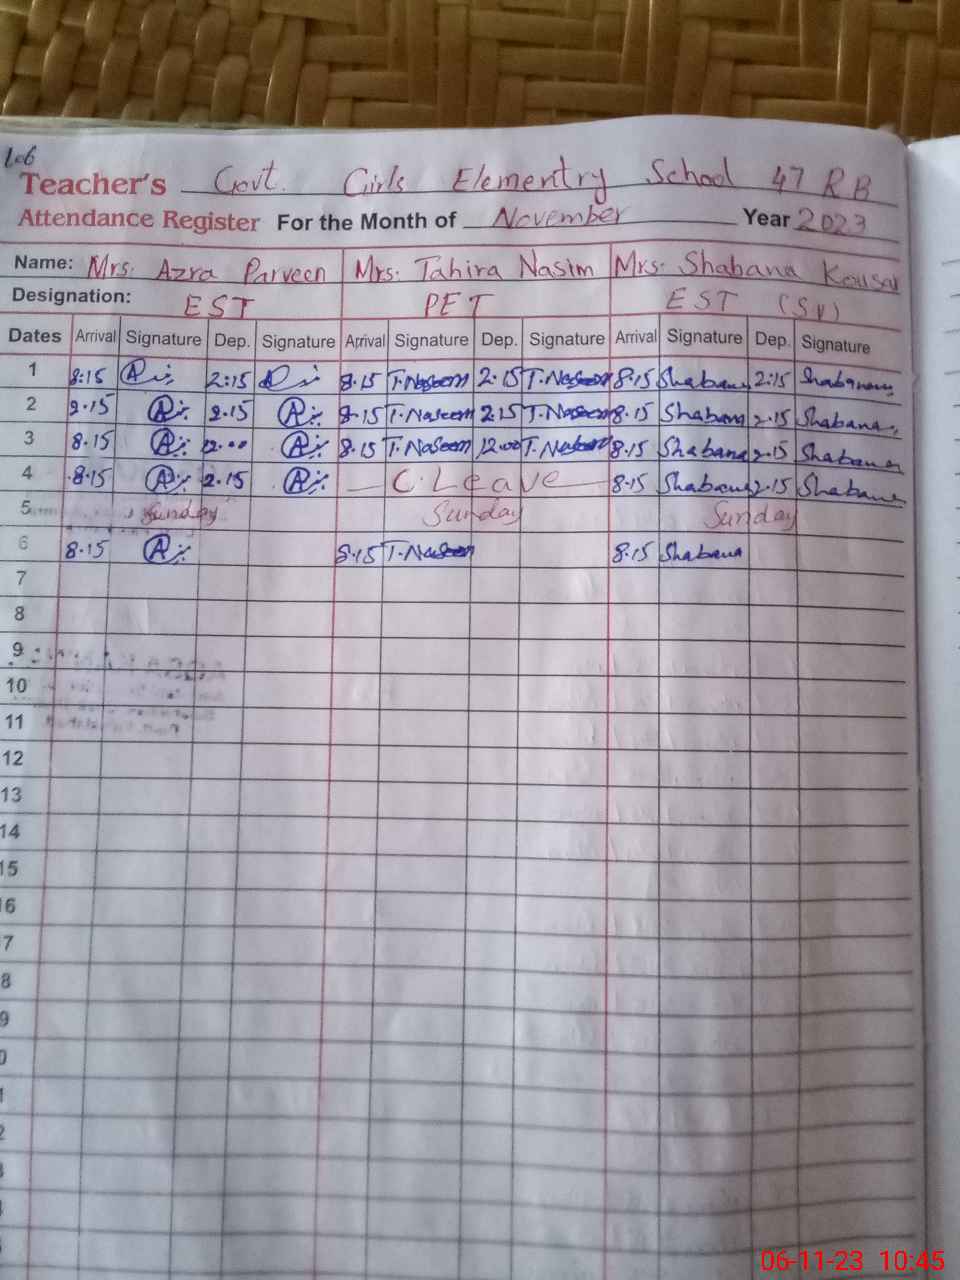 106
Teacher's Govt. Girls Elementry School 47 RB
Attendance Register For the Month of November Year 2023
Name: Mrs. Azra Parveen Mrs. Tahira Nasim Mrs. Shabana Kousar
Designation: EST PET EST (SV)
Dates Arrival Signature Dep. Signature Arrival Signature Dep. Signature Arrival Signature Dep. Signature
1 8:15 2:15 8.15 T.Naseem 2.15 T.Naseem 8.15 Shabana 2:15 Shabana
2 8.15 2.15 8.15 T.Naseem 2.15 T.Naseem 8.15 Shabana 2.15 Shabana
3 8.15 12.00 8.15 T.Naseem 12.00 T.Naseem 8.15 Shabana 2.15 Shabana
4 8.15 2.15 C.Leave 8.15 Shabana 2.15 Shabana
5 Sunday Sunday Sunday
6 8.15 8.15 T.Naseem 8.15 Shabana
7
8
9
10
11
12
13
14
15
16
7
8
9
0
1
2
06-11-23 10:45